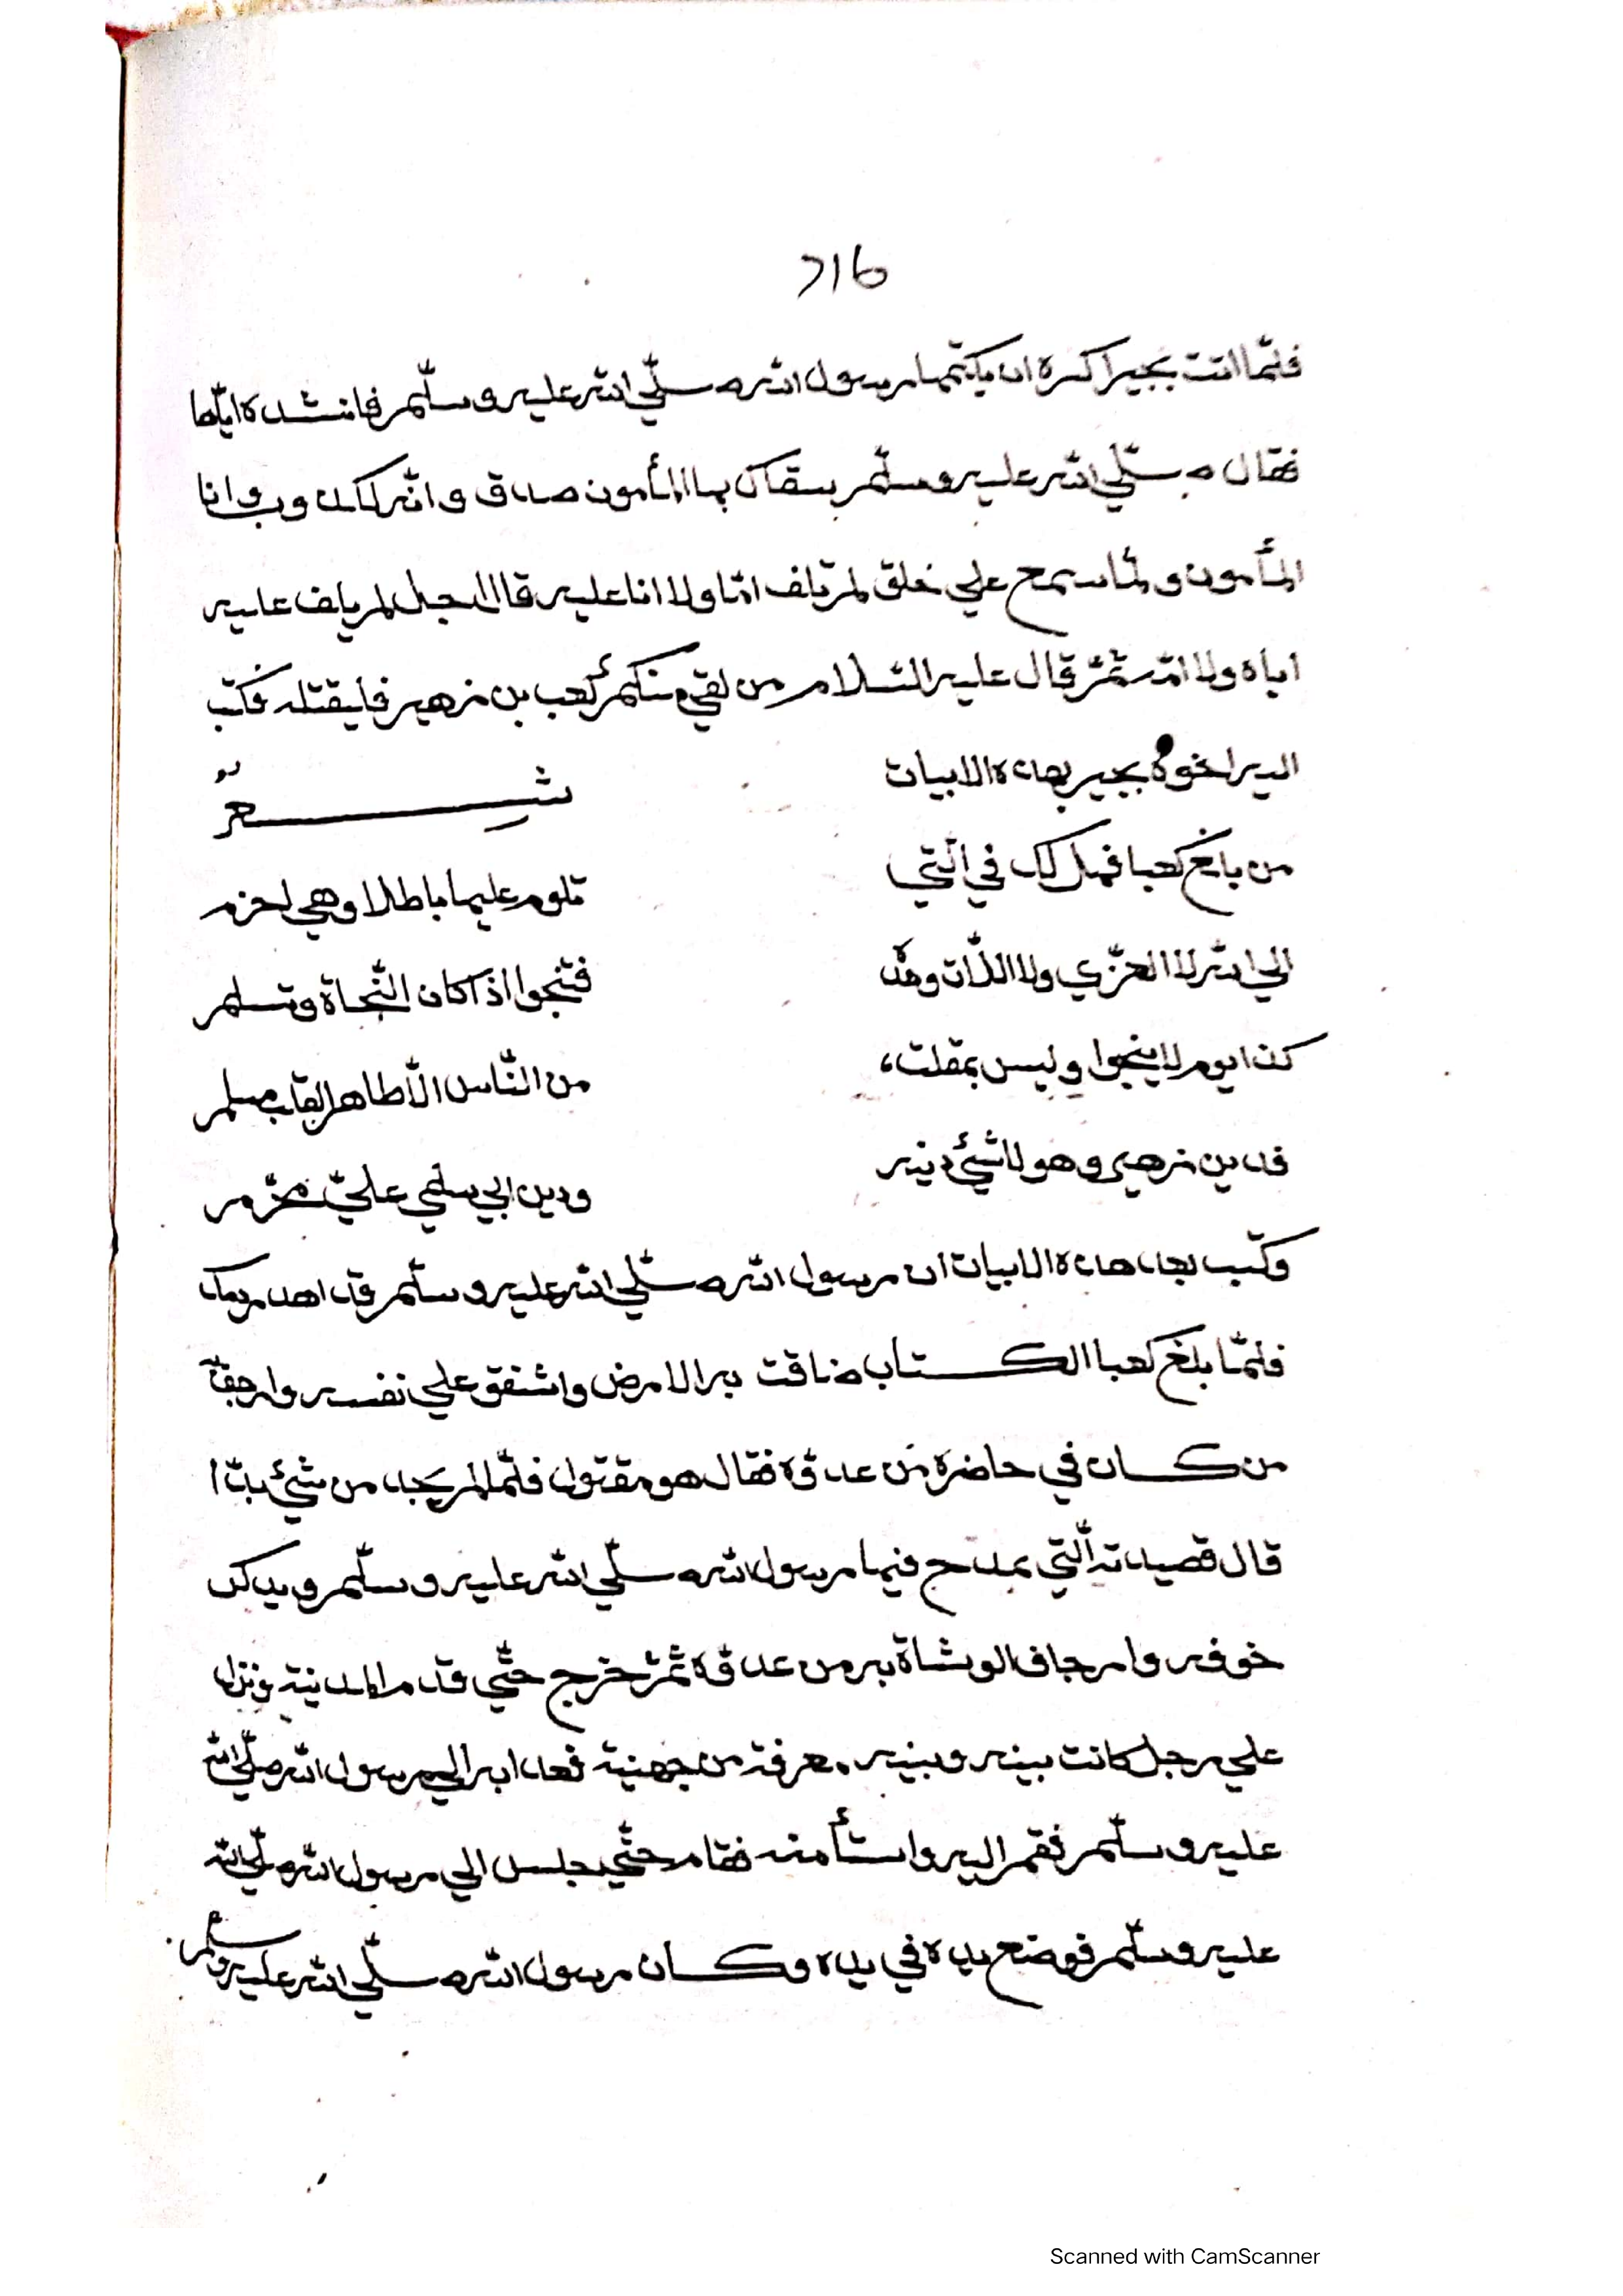 216
فلمّا اتت بجيرا كره ان يكتمها رسول الله صلّي الله عليه وسلّم فانشده ايّاها
فقال صلّي الله عليه وسلّم سقاك بها المأمون صدق وانّه لكذوب وانا
المأمون ولمّا سمع علي خلق لم تلف امّا ولا انا عليه قال اجل لم يلف عليه
اباه ولا امّه ثمّ قال عليه السّلام من لقي منكم كعب بن زهير فليقتله فكتب
اليه اخوه بجير بهذه الابيات
شعر
من بلغ كعبا فهل لك في الّتي
تلوم عليها باطلا وهي احزم
الي الله لا العزّي ولا اللّات وحدّه
فتنجوا اذا كان النّجاة وتسلم
لذا يوم لا ينجوا وليس بمفلت،
من النّاس الّا طاهر القلب مسلم
فدين زهير وهو لا شيئ دينه
ودين ابي سلمي عليّ محرّم
وكتب بعد هذه الابيات ان رسول الله صلّي الله عليه وسلّم قد اهدر دمك
فلمّا بلغ كعبا الكتاب ضاقت به الارض واشفق علي نفسه وارجف به
من كان في حاضره من عدوّه فقال هو مقتول فلمّا لم يجد من شيئ بدّا
قال قصيدته الّتي يمدح فيها رسول الله صلّي الله عليه وسلّم ويذكر
خوفه وارجاف الوشاة به من عدوّه ثمّ خرج حتّي قدم المدينة ونزل
علي رجل كانت بينه وبينه معرفة من جهنية فغدا به الي رسول الله صلّي الله
عليه وسلّم فقم اليه واستأمنه فقام حتّي جلس الي رسول الله صلّي الله
عليه وسلّم فوضع يده في يده وكان رسول الله صلّي الله عليه وسلّم
Scanned with CamScanner